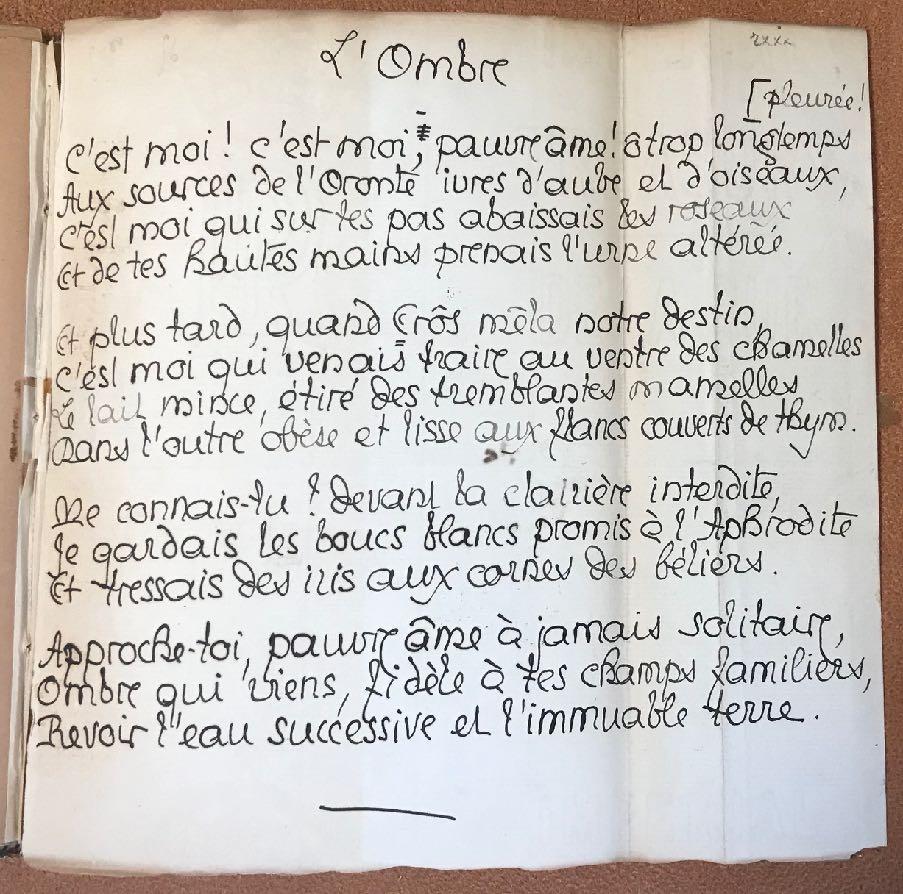 L'Ombre
[pleurée!
C'est moi! c'est moi, pauvre âme! ô trop longtemps
Aux sources de l'Oronte ivres d'aube et d'oiseaux,
C'est moi qui sur tes pas abaissais les roseaux
Et de tes hautes mains prenais l'urne altérée.
Et plus tard, quand Erôs mêla notre destin,
C'est moi qui venais traire au ventre des chamelles
Le lait mince, étiré des tremblantes mamelles
Dans l'outre obèse et lisse aux flancs couverts de thym.
Me connais-tu? Devant la clairière interdite,
Je gardais les boucs blancs promis à l'Aphrodite
Et tressais des iris aux cornes des béliers.
Approche-toi, pauvre âme à jamais solitaire,
Ombre qui viens, fidèle à tes champs familiers,
Revoir l'eau successive et l'immuable terre.